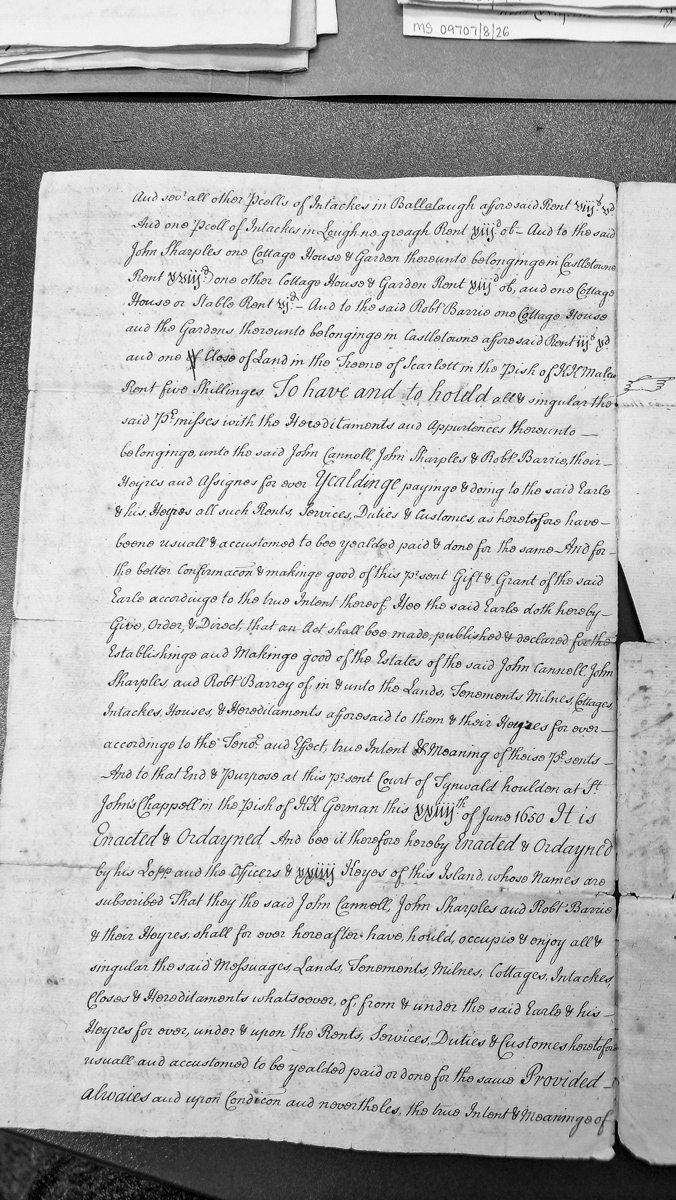 MS 09707/8/26
And sev.ll all other Pcells of Intackes in Ballalaugh afforesaid Rent viijs vd
And one Pcell of Intackes in Lough ne greagh Rent xiijd ob – And to the said
John Sharples one Cottage House & Garden thereunto belonginge in Castletowne
Rent xviijd one other Cottage House & Garden Rent xiijd ob, and one Cottage
House or Stable Rent vjd – And to the said Robt Barrie one Cottage House
and the Gardens thereunto belonginge in Castletowne afforesaid Rent iijs xd
and one Close of Land in the Treene of Scarlett in the Pish of KK Malew
Rent five Shillinges To have and to hould all & singular the
said Pr.misses with the Hereditaments and Appurtences thereunto —
belonginge, unto the said John Cannell, John Sharples & Robt Barrie, their –
Heyres and Assignes for ever Yealdinge payinge & doing to the said Earle
& his Heyres all such Rents, Services, Duties & Customes, as heretofore have –
beene usuall & accustomed to bee yealded paid & done for the same – And for –
the better Confirmacon & makinge good of this pr.sent Gift & Grant of the said
Earle accordinge to the true Intent thereof, Hee the said Earle doth hereby –
Give, Order, & Direct, that an Act shall bee made, published & declared for the
Establishinge and Makinge good of the Estates of the said John Cannell, John
Sharples, and Robt Barrey of in & unto the Lands, Tenements, Milnes, Cottages,
Intackes, Houses, & Hereditaments afforesaid to them & their Heyres for ever –
accordinge to the Tenor and Effect, true Intent & Meaning of theise Pr.sents –
And to that End & Purpose at this pr.sent Court of Tynwald houlden at St
John's Chappell in the Pish of KK German this xxiiijth of June 1650 It is
Enacted & Ordayned And bee it therefore hereby Enacted & Ordayned
by his Lopp and the Officers & xxiiij Keyes of this Island whose Names are
subscribed That they the said John Cannell, John Sharples and Robt Barrie
& their Heyres, shall for ever hereafter have, hould, occupie & enjoy all &
singular the said Messuages, Lands, Tenements, Milnes, Cottages, Intackes,
Closes & Hereditaments whatsoever, of, from & under the said Earle & his –
Heyres for ever, under & upon the Rents, Services, Duties & Customes heretofore
usuall and accustomed to be yealded paid or done for the same Provided –
alwaies and upon Condicon and nevertheles, the true Intent & Meaninge of